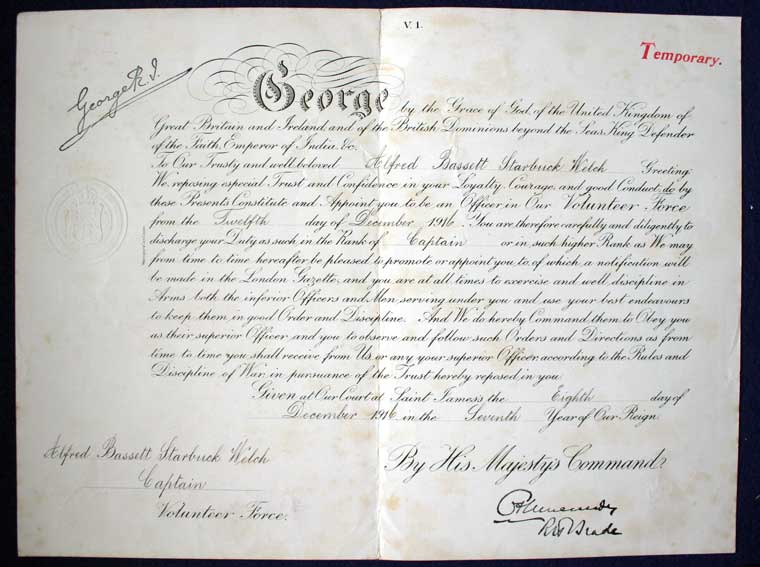 V. 1.
Temporary.
George R. I.
George by the Grace of God, of the United Kingdom of
Great Britain and Ireland, and of the British Dominions beyond the Seas, King, Defender
of the Faith, Emperor of India, &c.
To Our Trusty and well beloved Alfred Bassett Starbuck Welch Greeting.
We, reposing especial Trust and Confidence in your Loyalty, Courage, and good Conduct, do by
these Presents Constitute and Appoint you to be an Officer in Our Volunteer Force
from the Twelfth day of December 1916. You are therefore carefully and diligently to
discharge your Duty as such in the Rank of Captain or in such higher Rank as We may
from time to time hereafter be pleased to promote or appoint you to, of which a notification will
be made in the London Gazette, and you are at all times to exercise and well discipline in
Arms both the inferior Officers and Men serving under you and use your best endeavours
to keep them in good Order and Discipline. And We do hereby Command them to Obey you
as their superior Officer, and you to observe and follow such Orders and Directions as from
time to time you shall receive from Us, or any your superior Officer, according to the Rules and
Discipline of War, in pursuance of the Trust hereby reposed in you.
Given at Our Court at Saint James's, the Eighth day of
December 1916 in the Seventh Year of Our Reign
Alfred Bassett Starbuck Welch
Captain
Volunteer Force.
By His Majesty's Command.
R H Brade